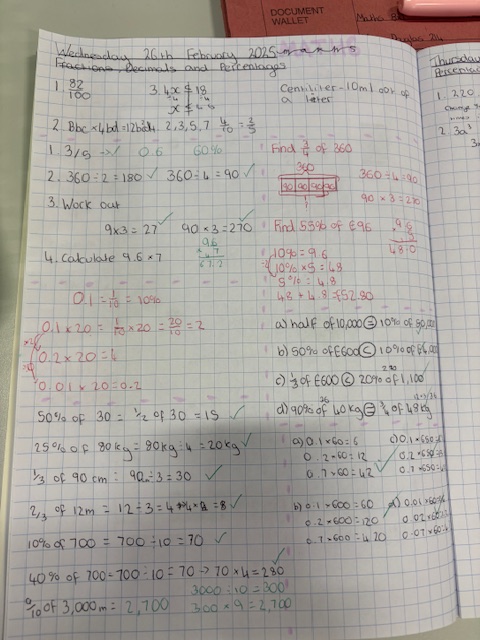 DOCUMENT
WALLET
Wednesday 26th February 2025 maths
Fractions, Decimals and Percentages
1. 82/100
3. 4x ≤ 18
Centiliter - 10ml
a liter
2. 8bc × 4bd = 12b²dc 2, 3, 5, 7 4/10 = 2/5
1. 3/5 → 0.6 60%
2. 360 ÷ 2 = 180 ✓ 360 ÷ 4 = 90 ✓
3. Work out
9 × 3 = 27 ✓ 90 × 3 = 270 ✓
4. Calculate 9.6 × 7
9.6
× 7
67.2
0.1 = 1/10 = 10%
0.1 × 20 = 1/10 × 20 = 20/10 = 2
0.2 × 20 = 4
0.01 × 20 = 0.2
50% of 30 = 1/2 of 30 = 15 ✓
25% of 80kg = 80kg ÷ 4 = 20kg ✓
1/3 of 90 cm: 90 ÷ 3 = 30 ✓
2/3 of 12m = 12 ÷ 3 = 4 = 8 ✓
10% of 700 = 700 ÷ 10 = 70 ✓
40% of 700 = 700 ÷ 10 = 70 → 70 × 4 = 280 ✓
9/10 of 3,000m = 2,700
3000 ÷ 10 = 300
300 × 9 = 2,700
Find 3/4 of 360
360
90 90 90 90
360 ÷ 4 = 90
90 × 3 = 270
Find 55% of £96
10% = 9.6
10% × 5 = 48
5% = 4.8
48 + 4.8 = £52.80
9.6
48.0
a) half of 10,000 = 10% of 50,000
b) 50% of £600 < 10% of £6,000
c) 1/3 of £600 < 20% of 1,100
d) 90% of 40kg = 3/4 of 48kg
a) 0.1 × 60 = 6
0.2 × 60 = 12
0.7 × 60 = 42 ✓
c) 0.1 × 650 =
0.2 × 650 =
0.7 × 650 =
b) 0.1 × 600 = 60
0.2 × 600 = 120
0.7 × 600 = 420
d) 0.01 × 60
0.02 × 60
0.07 × 60
Thursday
1. 220
2. 3a